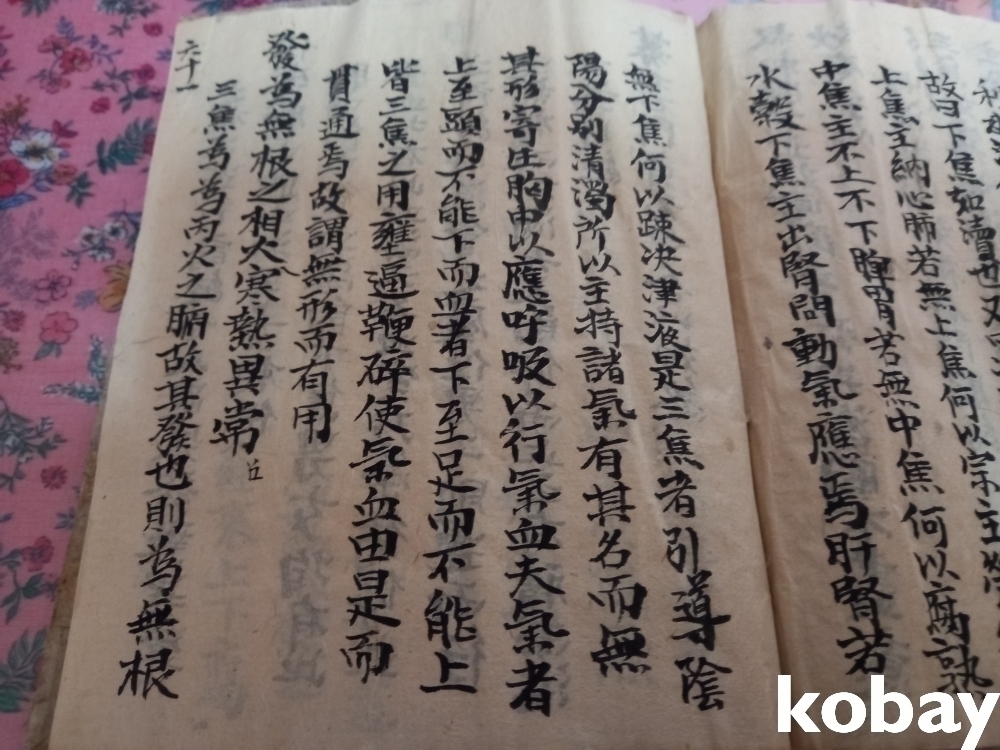 故曰下焦如瀆也又
上焦主納心肺若無上焦何以宗主
中焦主不上不下脾胃若無中焦何以腐熟
水穀下焦主出腎間動氣應焉肝腎若
無下焦何以踈决津液是三焦者引導陰
陽分别清濁所以主持諸氣有其名而無
其形寄在胸中以應呼吸以行氣血夫氣者
上至頭而不能下而血者下至足而不能上
皆三焦之用壅逼鞭碎使氣血由是而
貫通焉故謂無形而有用
發爲無根之相火寒熱異常
三焦爲爲丙火之腑故其發也則爲無根
六十一
kobay